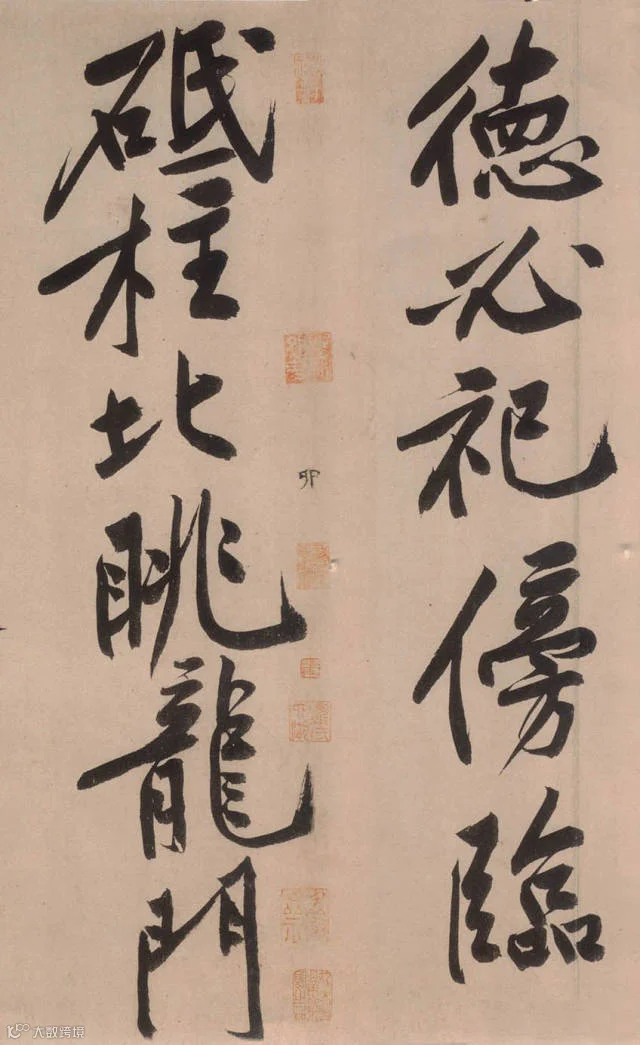 德必祀傍臨
砥柱北眺龍門
卯
大数跨境